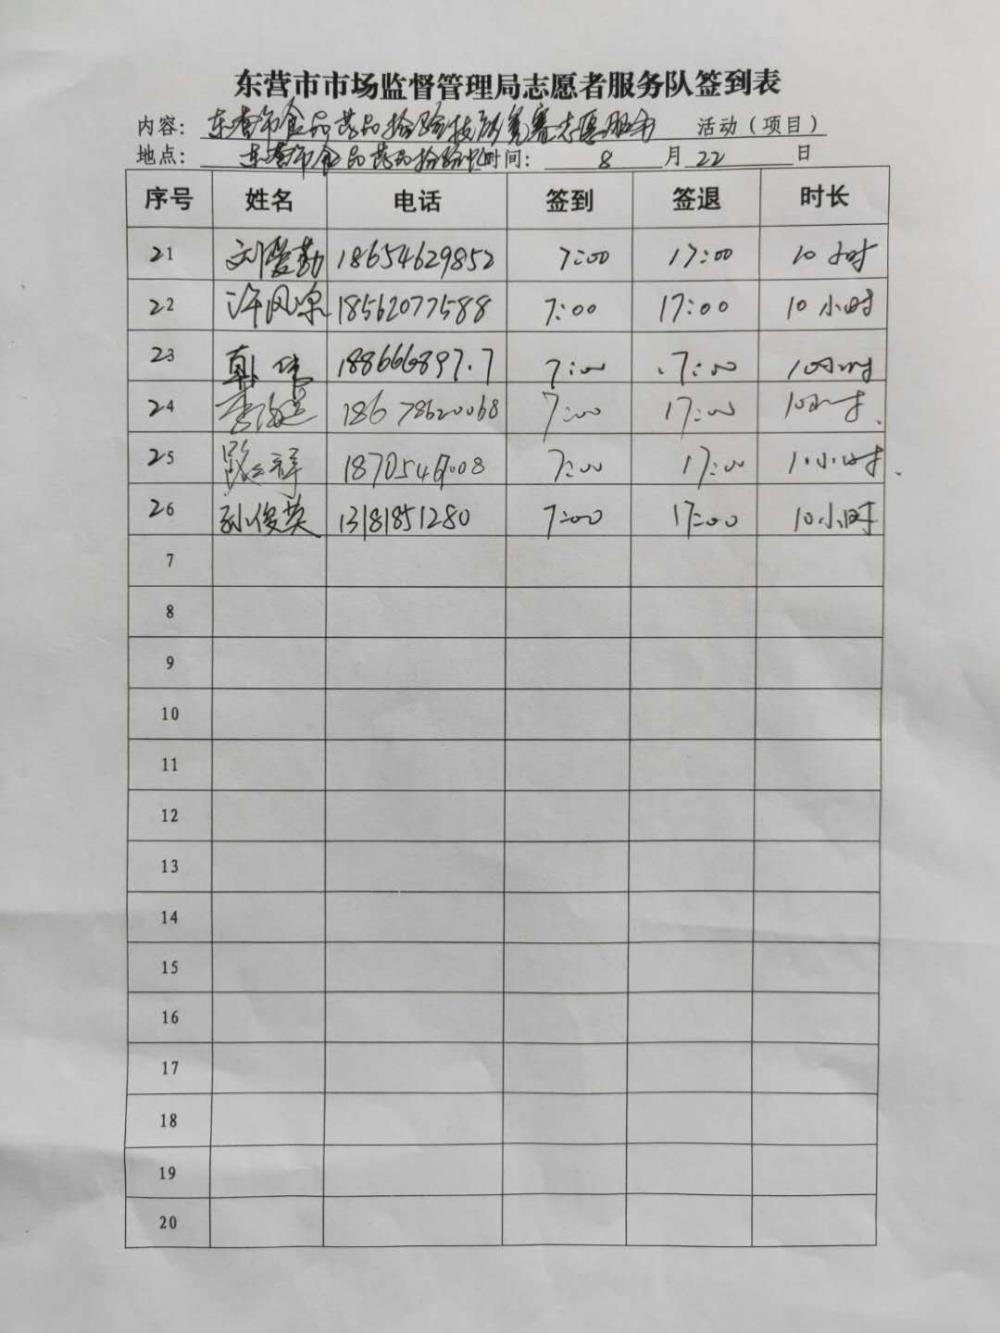 东营市市场监督管理局志愿者服务队签到表
内容: 东营市食品药品检验技能竞赛志愿服务 活动（项目）
地点: 东营市食品药品检验 时间: 8 月 22 日
序号 姓名 电话 签到 签退 时长
21 刘爱勤 18654629852 7:00 17:00 10小时
22 许风 18562077588 7:00 17:00 10小时
23 7:00 17:00 10小时
24 李 18678620068 7:00 17:00 10小时
25 7:00 17:00 10小时
26 孙俊英 13181851280 7:00 17:00 10小时
7
8
9
10
11
12
13
14
15
16
17
18
19
20